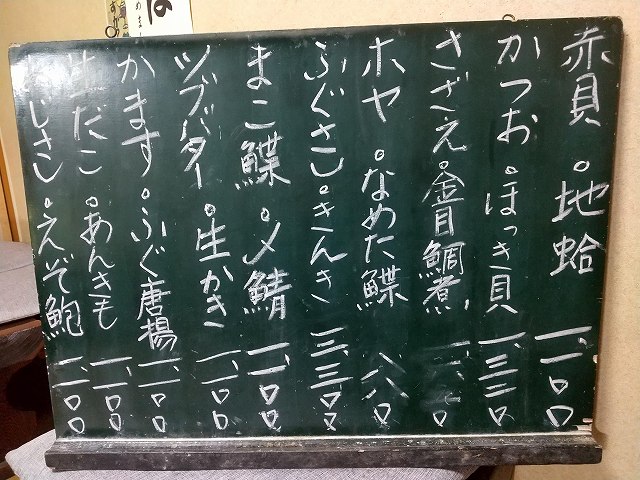 赤貝。地蛤 一、一〇〇
かつお。ほっき貝
さざえ。金目鯛煮
ホヤ。なめた鰈 八八〇
ふぐさし。きんき 三、三〇〇
まこ鰈。〆鯖 一、一〇〇
ツブバター。生かき 一、一〇〇
かます。ふぐ唐揚 一、一〇〇
だこ。あんきも 一、一〇〇
じさし。えぞ鮑 一、一〇〇